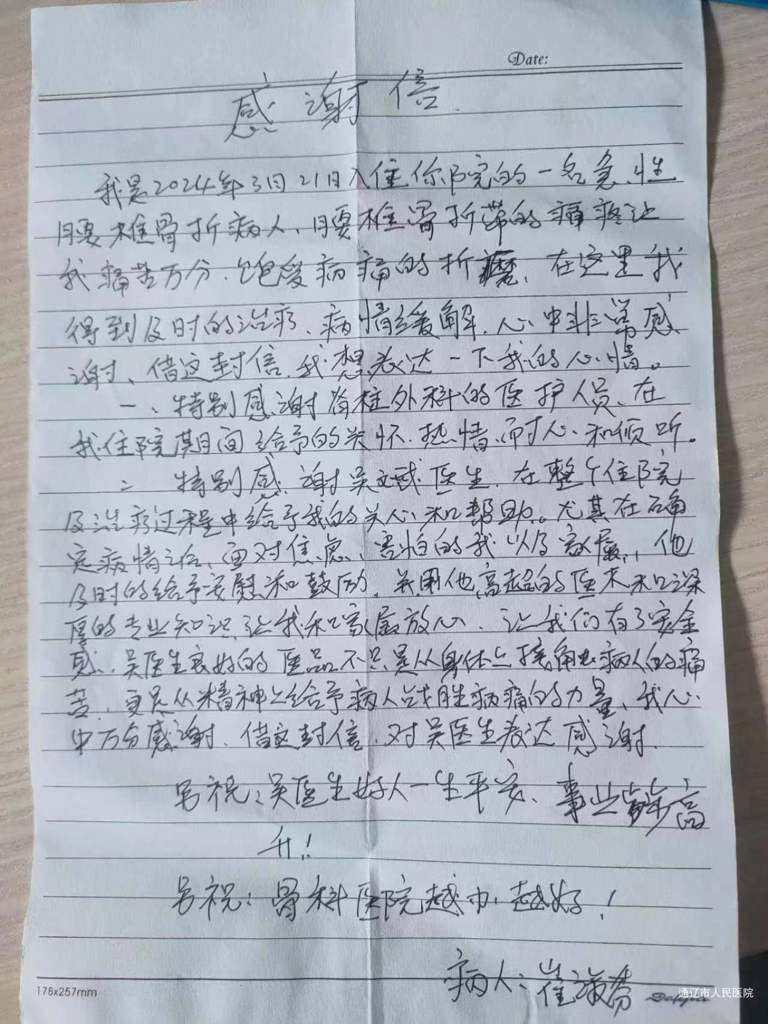 Date:
感谢信
我是2024年3月21日入住你院的一名急性
腰椎骨折病人,腰椎骨折带的痛疼让
我痛苦万分,饱受病痛的折磨,在这里我
得到及时的治疗、病情缓解,心中非常感
谢、借这封信,我想表达一下我的心情。
一、特别感谢脊柱外科的医护人员、在
我住院期间给予的关怀、热情、耐心和倾听。
二 特别感谢吴文 医生,在整个住院
及治疗过程中给予我的关心和帮助。尤其在确
定病情之后,面对焦虑、害怕的我以及家属,他
及时的给予安慰和鼓励,并用他高超的医术和深
厚的专业知识,让我和家属放心、让我们有了安全
感,吴医生良好的医品不只是从身体上接触病人的痛
苦,更是从精神上给予病人战胜病痛的力量,我心
中万分感谢、借这封信,对吴医生表达感谢.
另祝:吴医生好人一生平安、事业步步高
升!
另祝:骨科医院越办越好!
病人:崔 芬
176x257mm
通辽市人民医院